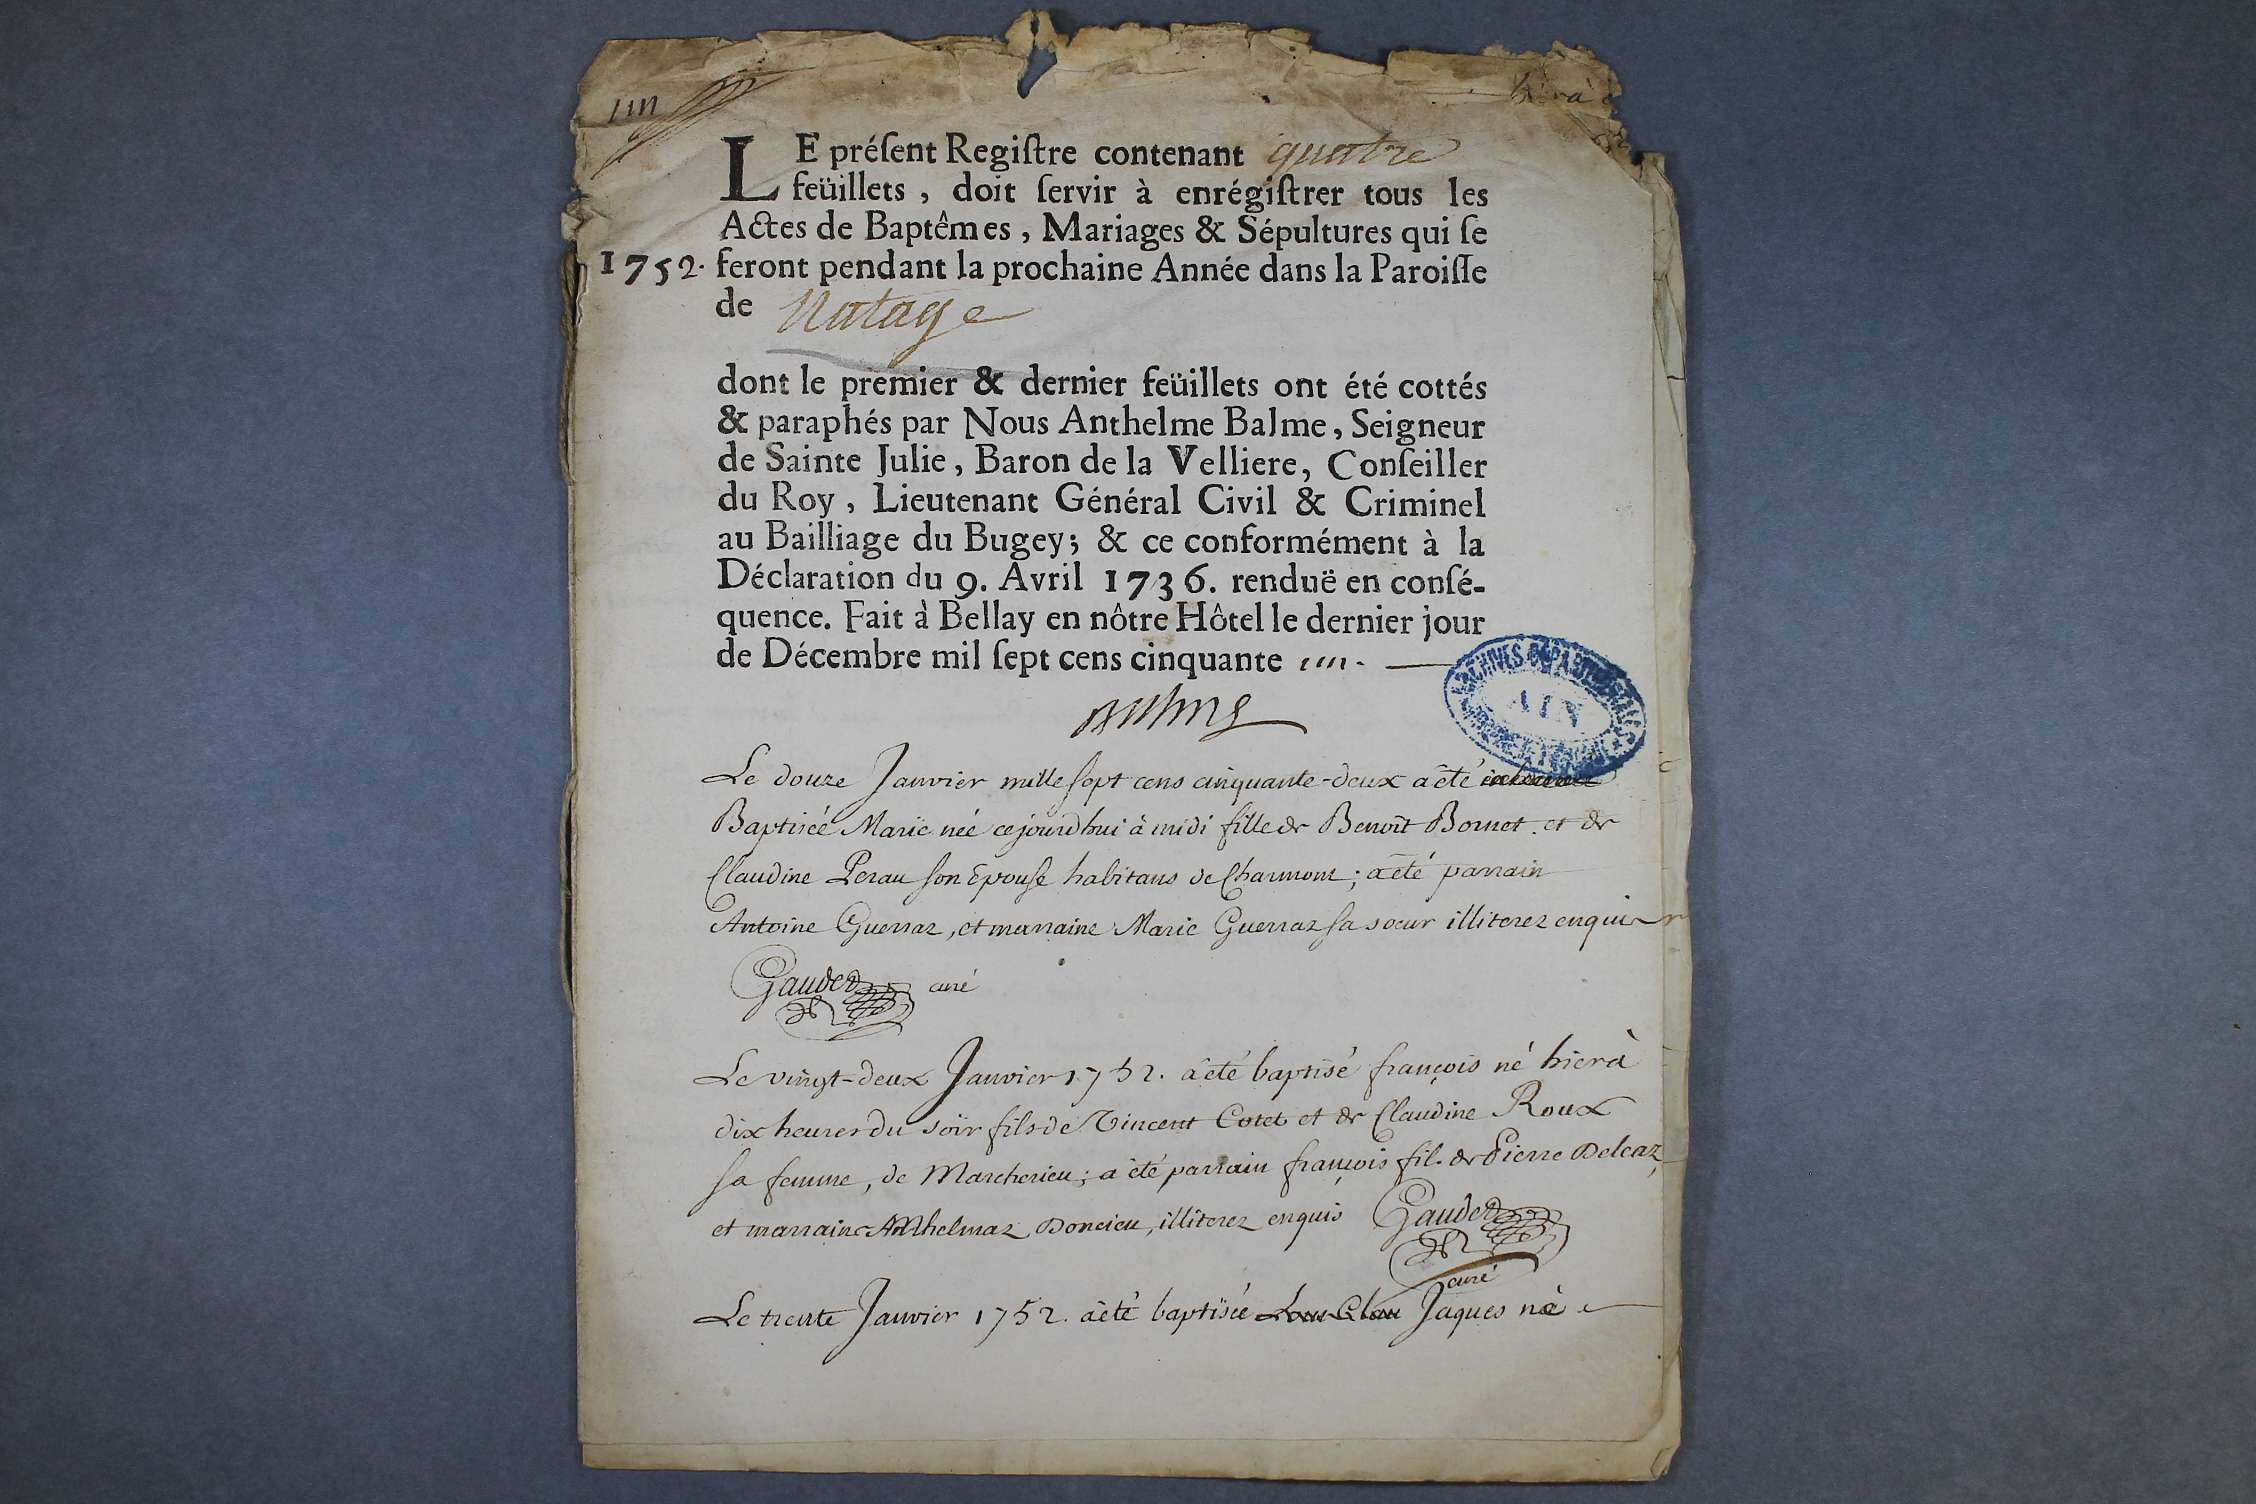 LE préſent Regiſtre contenant quatre
feüillets, doit ſervir à enrégiſtrer tous les
Actes de Baptêmes, Mariages & Sépultures qui ſe
1752. feront pendant la prochaine Année dans la Paroiſſe
de Natage
dont le premier & dernier feüillets ont été cottés
& paraphés par Nous Anthelme Balme, Seigneur
de Sainte Julie, Baron de la Velliere, Conſeiller
du Roy, Lieutenant Général Civil & Criminel
au Bailliage du Bugey; & ce conformément à la
Déclaration du 9. Avril 1736. renduë en conſé-
quence. Fait à Bellay en nôtre Hôtel le dernier jour
de Décembre mil ſept cens cinquante
ARCHIVES DÉPARTEMENTALES
AIN
Le douze Janvier mille sept cens cinquante-deux a été
Baptisée Marie née cejourdhui à midi fille de Benoit Bornet et de
Claudine Perau son Epouse habitans de Charmont; a été parrain
Antoine Guerraz, et marraine Marie Guerraz sa soeur illiterez enquis
Gauder curé
Le vingt-deux Janvier 1752. a été baptisé françois né hier à
dix heures du soir fils de Vincent Cotet et de Claudine Roux
sa femme, de Marcherieu; a été parrain françois fils de Pierre Delcaz,
et marraine Anthelmaz Doncieu, illiterez enquis Gauder
curé
Le trente Janvier 1752. a été baptisée Jaques né